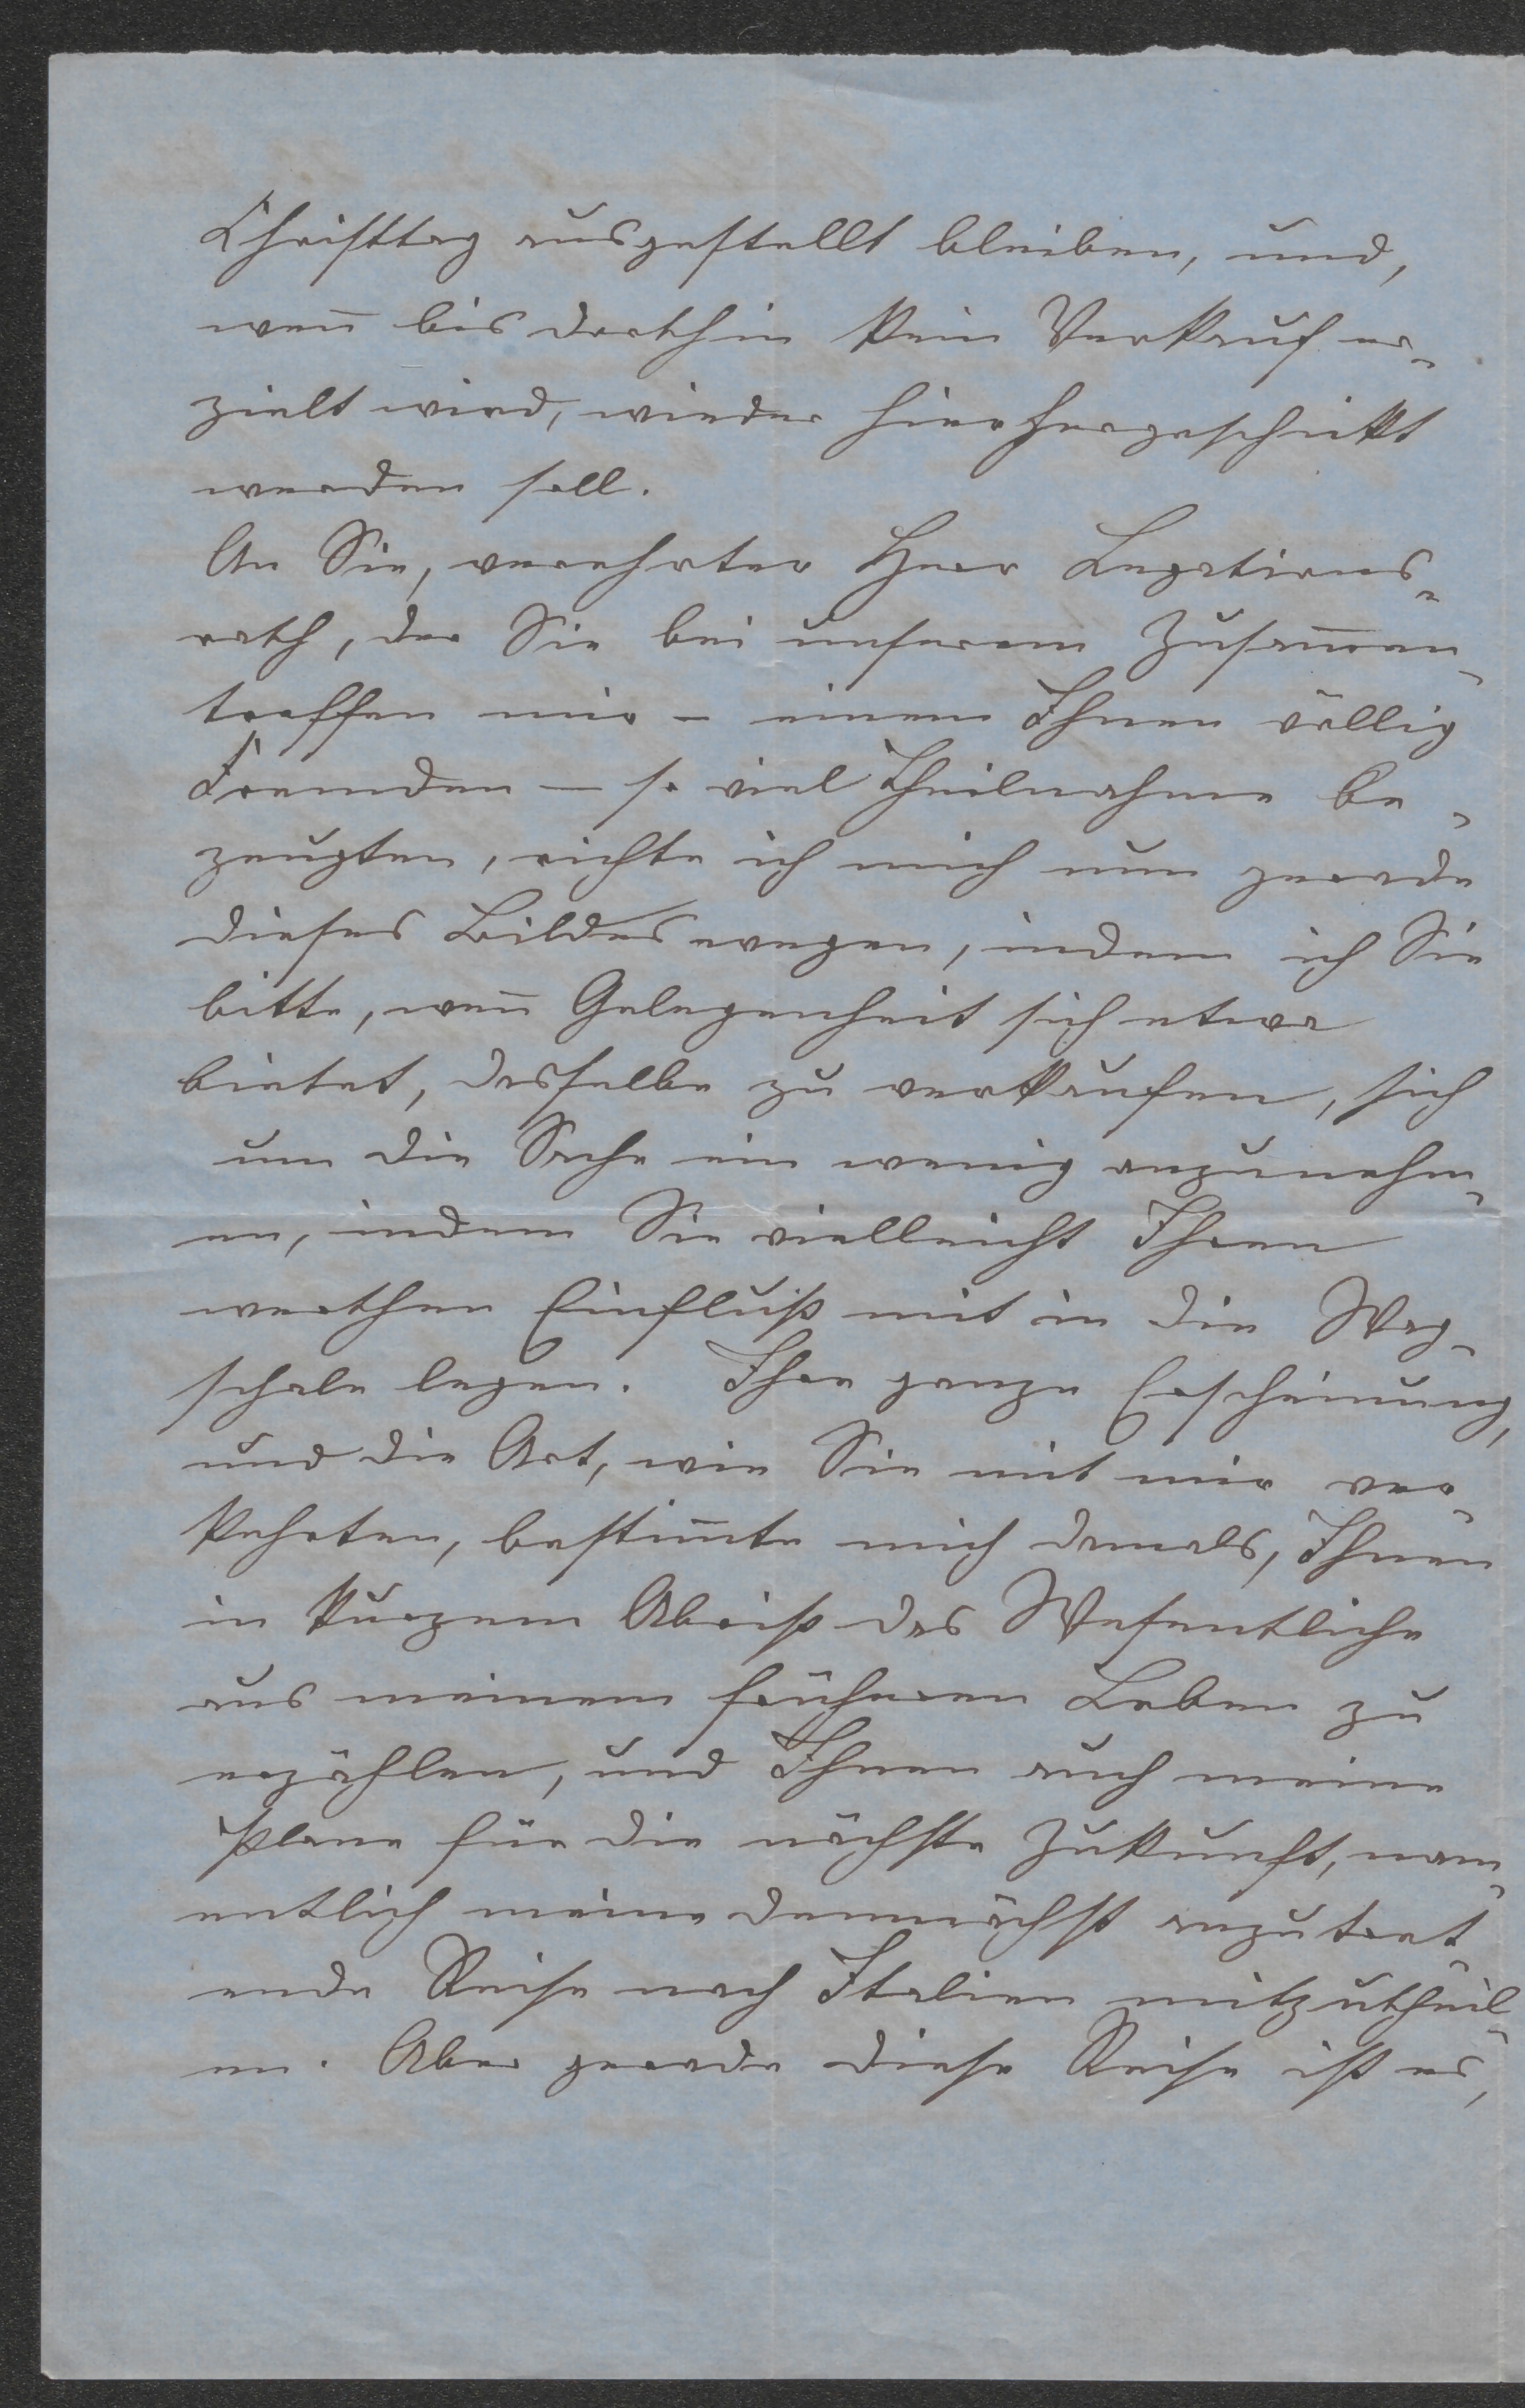 Christtag ausgestellt bleiben, und,
wen̄ bis dorthin kein Verkauf er-
zielt wird, wieder hierhergeschickt
werden soll.
An Sie, verehrter Herr Legations-
rath, der Sie bei unserem Zusam̄en-
treffen mir – einem Ihnen völlig
Fremden – so viel Theilnahme be-
zeugten, richte ich mich nun gerade
dieses Bildes wegen, indem ich Sie
bitte, wen̄ Gelegenheit sich etwa
bietet, dasselbe zu verkaufen, sich
um die Sache ein wenig anzunehm-
en, indem Sie vielleicht Ihren
werthen Einfluß mit in die Wag-
schale legen. Ihre ganze Erscheinung,
und die Art, wie Sie mit mir ver-
kehrten, bestim̄te mich damals, Ihnen
in kurzem Abriß das Wesentliche
aus meinem früheren Leben zu
erzählen, und Ihnen auch meine
Plane für die nächste Zukunft, nam-
entlich meine demnächst anzutret-
ende Reise nach Italien mitzutheil-
en. Aber gerade diese Reise ist es,